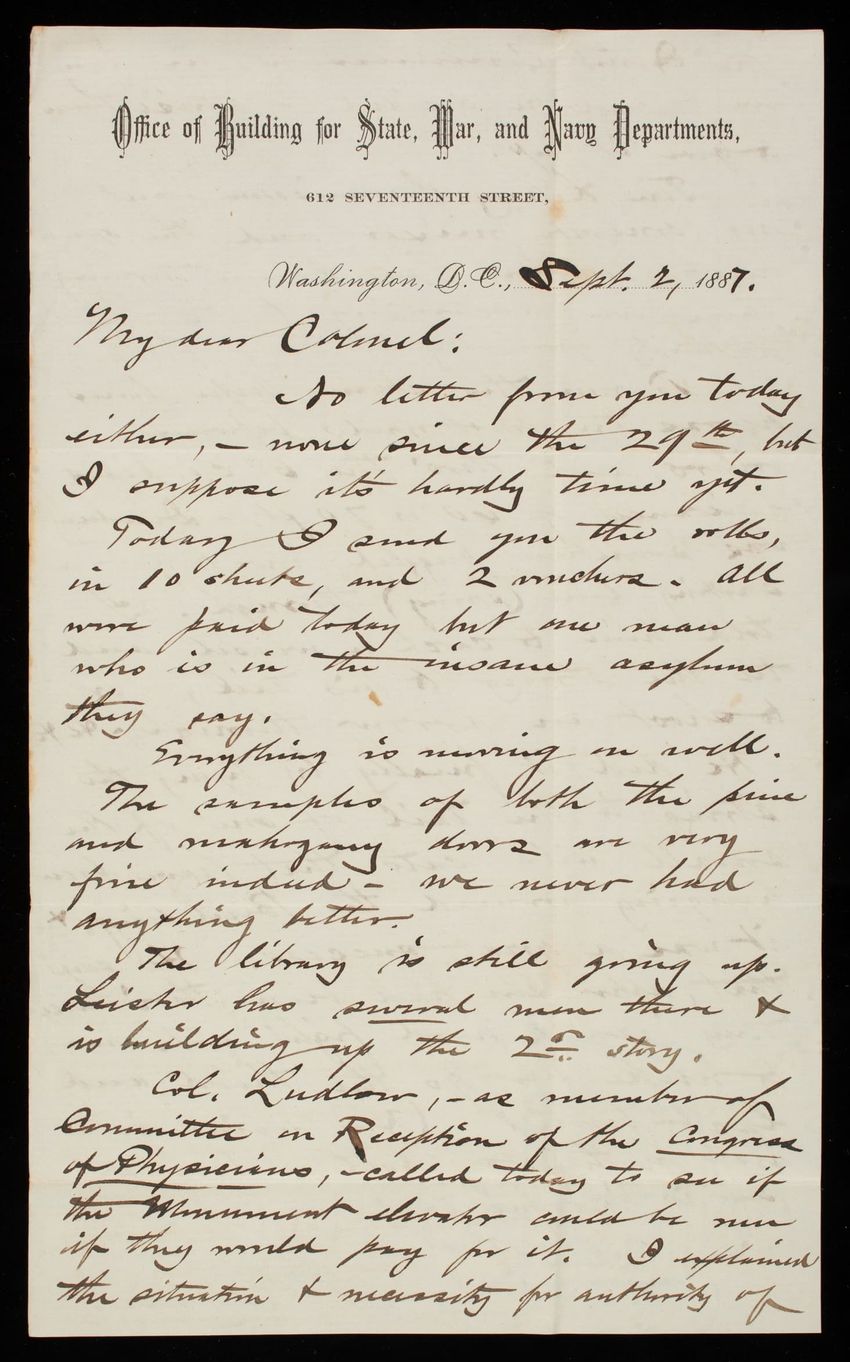 Office of Building for State, War, and Navy Departments,
612 SEVENTEENTH STREET,
Washington, D.C., Sept. 2, 1887.
My dear Colonel:
No letter from you today
either, – none since the 29th, but
I suppose it's hardly time yet.
Today I send you the rolls,
in 10 sheets, and 2 vouchers. All
were paid today but one man
who is in the insane asylum
they say.
Everything is moving on well.
The samples of both the pine
and mahogany doors are very
fine indeed – we never had
anything better.
The library is still going up.
Leister has several men there &
is building up the 2nd story.
Col. Ludlow, – as member of
Committee on Reception of the Congress
of Physicians, – called today to see if
the Monument elevator could be run
if they would pay for it. I explained
the situation & necessity for authority of